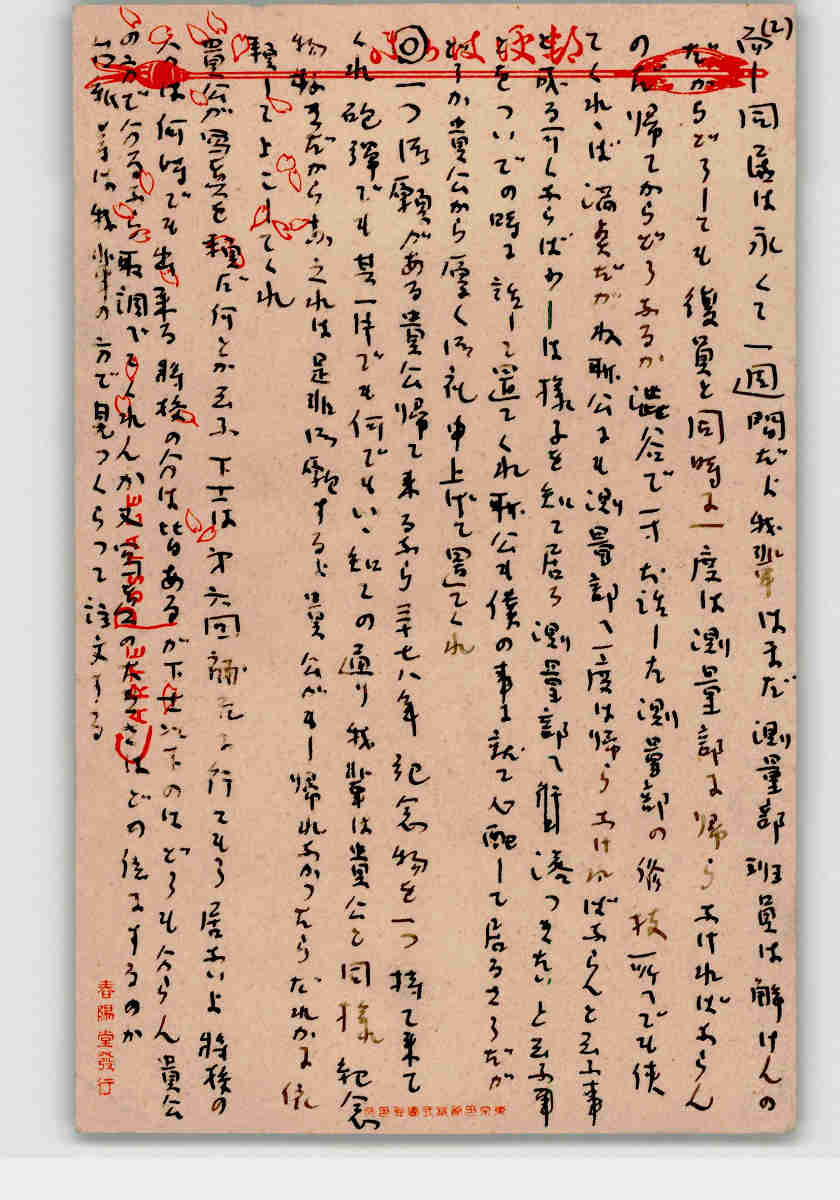 (2)
而し同居は永くて一週間だよ我輩はまだ測量部班員は解けんの
だからどうしても復員と同時に一度は測量部に帰らなければならん
のだ帰てからどうなるか渋谷で一寸お話した測量部の
てくれゝば満足だが 公にも測量部へ一度は帰らなければならんと云ふ事
と成るべくならばわしは様子を知て居る測量部へ 落つきたいと云ふ事
とをついでの時に話して置てくれ 公も僕の事に就て心配して居るさうだが
どうか貴公から厚く御礼申上げて置てくれ
◎一つ御願がある貴公帰て来るなら三十七八年記念物を一つ持て来て
くれ砲弾でも其一片でも何でもいゝ知ての通り我輩は貴公と同様記念
物 きだからなこれは是非御願するよ貴公がもし帰れなかつたらだれかに依
頼してよこしてくれ
貴公が写真を 何とか云ふ下士は 六回 に行てもう居ないよ将校の
分は何時でも出来る将校の分は皆あるが下士以下のはどうも分らん貴公
の方で分るなら取調べてくれんか 写真の大きさはどの位にするのか
台紙等は我輩の方で見つくらつて注文する
CARTE POSTALE
春陽堂發行